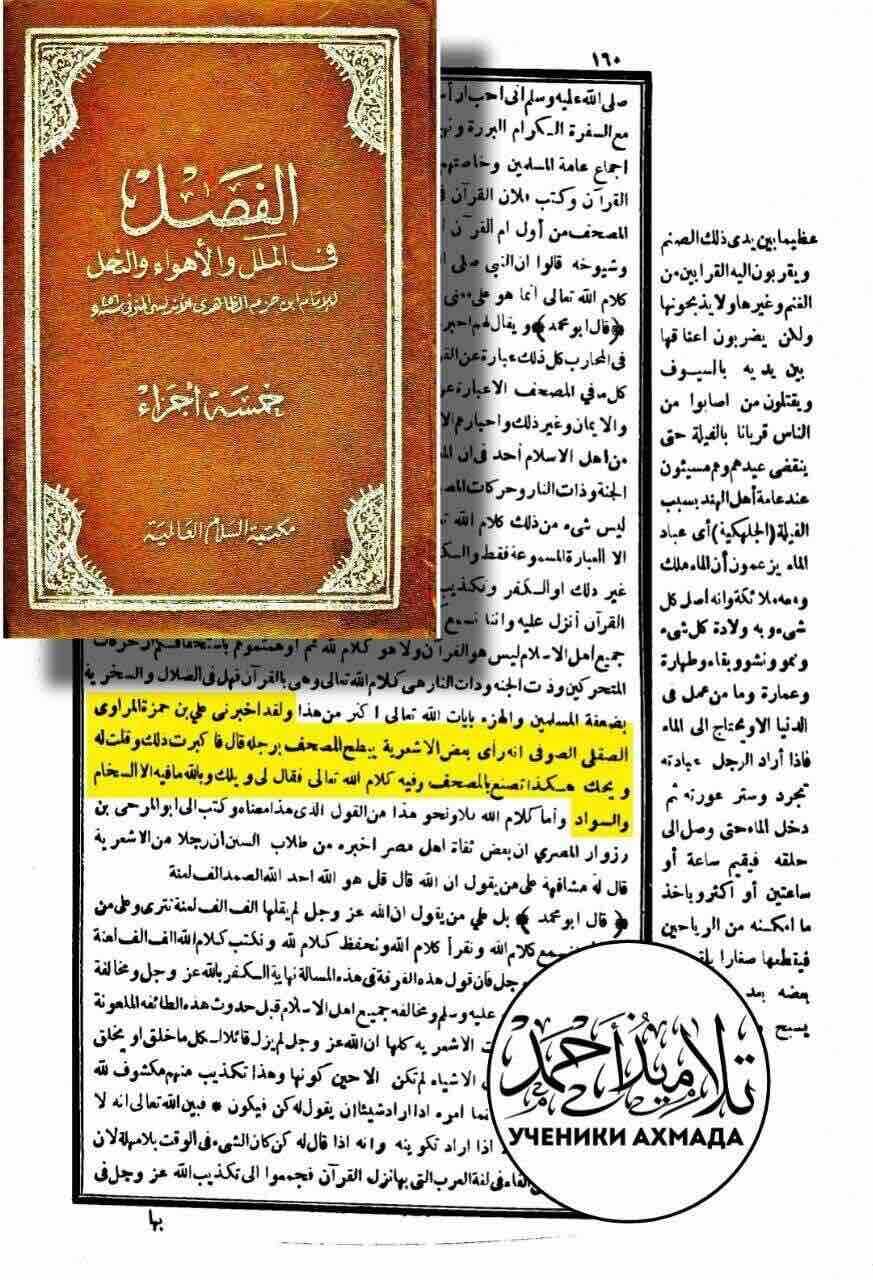 الفصل
في الملل والأهواء والنحل
للإمام ابن حزم الظاهري الأندلسي المتوفى سنة ٤٥٦
خمسة أجزاء
مكتبة السلام العالمية
١٦٠
صلى الله عليه وسلم انى احب ار أ
مع السفرة الكرام البررة و
اجماع عامة المسلمين وخاصتهم
القرآن وكتب لان القرآن ف
المصحف من أول ام القرآن
وشيوخه قالوا ان النبى صلى ا
كلام الله تعالى انما هو على
﴿قال ابو محمد﴾ ويقال لهم اخبر
فى المحارب كل ذلك عبارة عن القر
كل ما فى المصحف الا عبارة
والايمان وغير ذلك واخبارهم الا
من اهل الاسلام أحد فى ان
الجنة وذات النار وحركات المص
ليس شىء من ذلك كلام الله ت
الا العبارة المسموعة فقط والسك
غير ذلك او الكفر وتكذيب
القرآن أنزل عليه واننا نسمع
جميع أهل الاسلام ليس هو القرآن ولا هو كلام لله ثم
المتحركين وذات الجنه وذات النار هى كلام الله تعالى وهى بالقرآن فهل فى الضلال والسخرية
بضعفة المسلمين والهزء بايات الله تعالى اكثر من هذا ولقد اخبرنى على بن حمزة المراوى
الصقلى الصوفى انه رأى بعض الاشعرية يبطح المصحف برجله قال فاكبرت ذلك وقلت له
ويحك هكذا تصنع بالمصحف وفيه كلام الله تعالى فقال لى ويلك والله ما فيه الا السخام
والسواد وأما كلام الله فلا ونحو هذا من القول الذى هذا معناه وكتب الى ابو المرحى بن
رزوار المصرى ان بعض ثقاة اهل مصر اخبره من طلاب السنن ان رجلا من الاشعرية
قال له مشافهة على من يقول ان الله قال قل هو الله احد الله الصمد الف لعنة
﴿قال ابو محمد﴾ بل على من يقول ان الله عز وجل لم يقلها الف الف لعنة تترى وعلى من
نسمع كلام الله ونقرأ كلام الله ونحفظ كلام لله ونكتب كلام الله الف الف لعنة
وجل فان قول هذه الفرقة فى هذه المسالة نهاية الكفر بالله عز وجل ومخالفة
عليه وسلم ومخالفه جميع اهل الاسلام قبل حدوث هذه الطائفه الملعونة
ت الاشعريه كلها ان الله عز وجل لم يزل قائلا لكل ما خلق او يخلق
الاشياء لم تكن الا حين كونها وهذا تكذيب منهم مكشوف لله
نما امره اذا اراد شيئا ان يقول له كن فيكون * فبين الله تعالى انه لا
اذا اراد تكوينه وانه اذا قال له كن كان الشىء فى الوقت بلا مهلة لان
الفاء فى لغة العرب التى بها نزل القرآن فجمعوا الى تكذيب الله عز وجل فى
بها
عظيما بين يدى ذلك الصنم
ويقربون اليه القرابين من
الغنم وغيرها ولا يذبحونها
ولكن يضربون اعناقها
بين يديه بالسيوف
ويقتلون من اصابوا من
الناس قربانا بالغيلة حتى
ينقضى عيدهم وهم مسيئون
عند عامة أهل الهند بسبب
الغيلة (الجلهكية) أى عباد
الماء يزعمون أن الماء ملك
ومعه ملائكة وانه أصل كل
شىء وبه ولادة كل شىء
ونمو ونشو وبقاء وطهارة
وعمارة وما من عمل فى
الدنيا الا ويحتاج الى الماء
فاذا أراد الرجل عبادته
تجرد وستر عورته ثم
دخل الماء حتى وصل الى
حلقه فيقيم ساعة أو
ساعتين أو أكثر ويأخذ
ما امكنه من الرياحين
فيقطعها صغارا يلق
بعضه بعد
يسبح
تلاميذ أحمد
УЧЕНИКИ АХМАДА